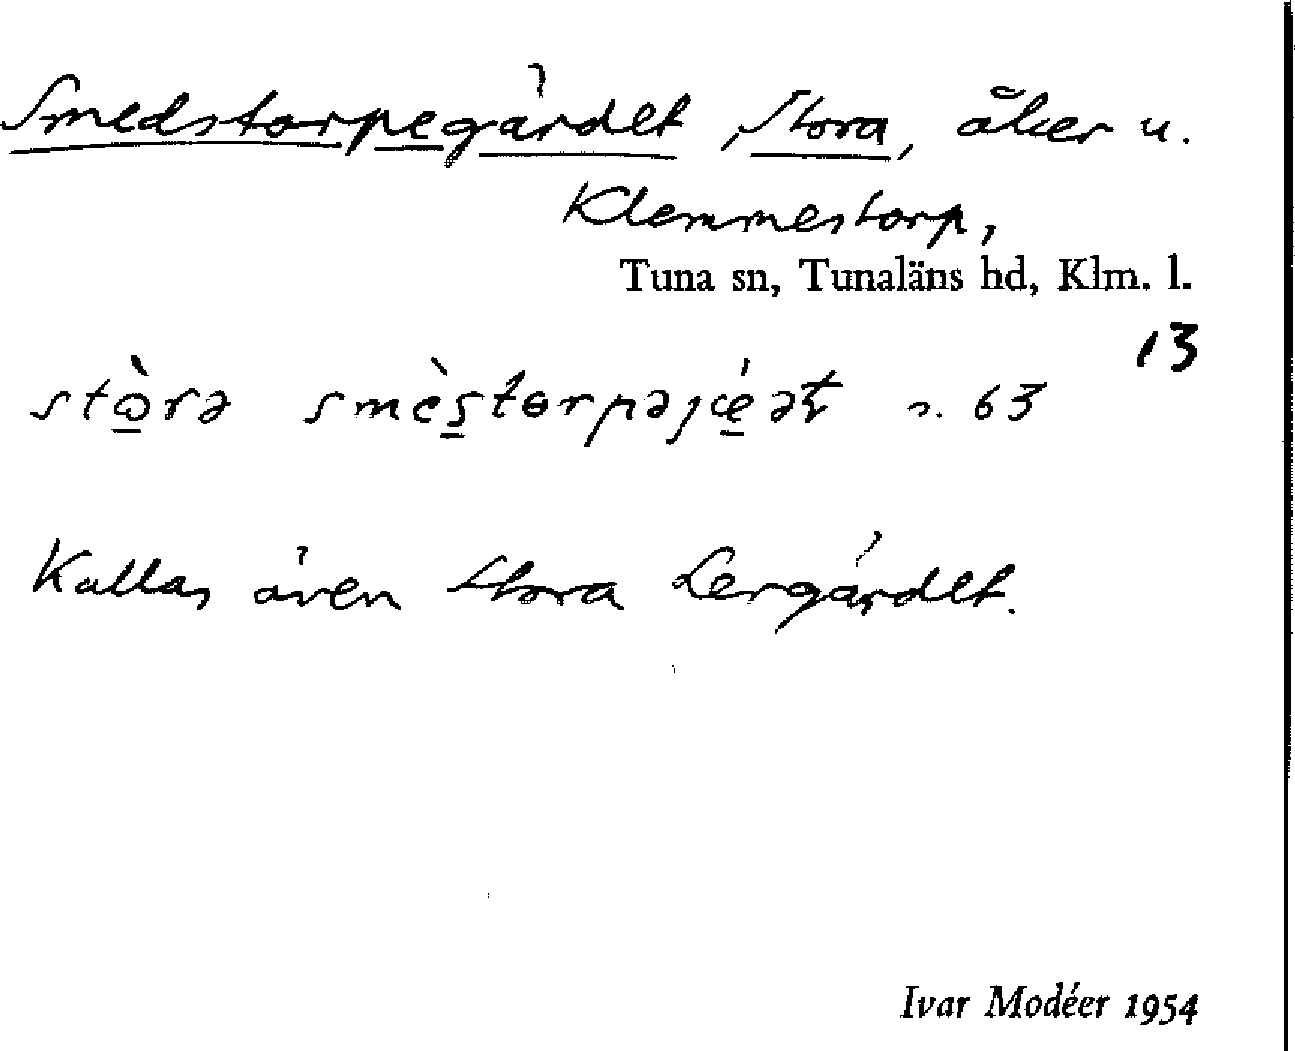 Smedstorpegärdet, Stora, åker u.
Klemmestorp,
Tuna sn, Tunaläns hd, Klm. l.
13
stò̱rə smès̱torpəjǽ̱ət s. 63
Kallas även Stora Lergärdet.
Ivar Modéer 1954